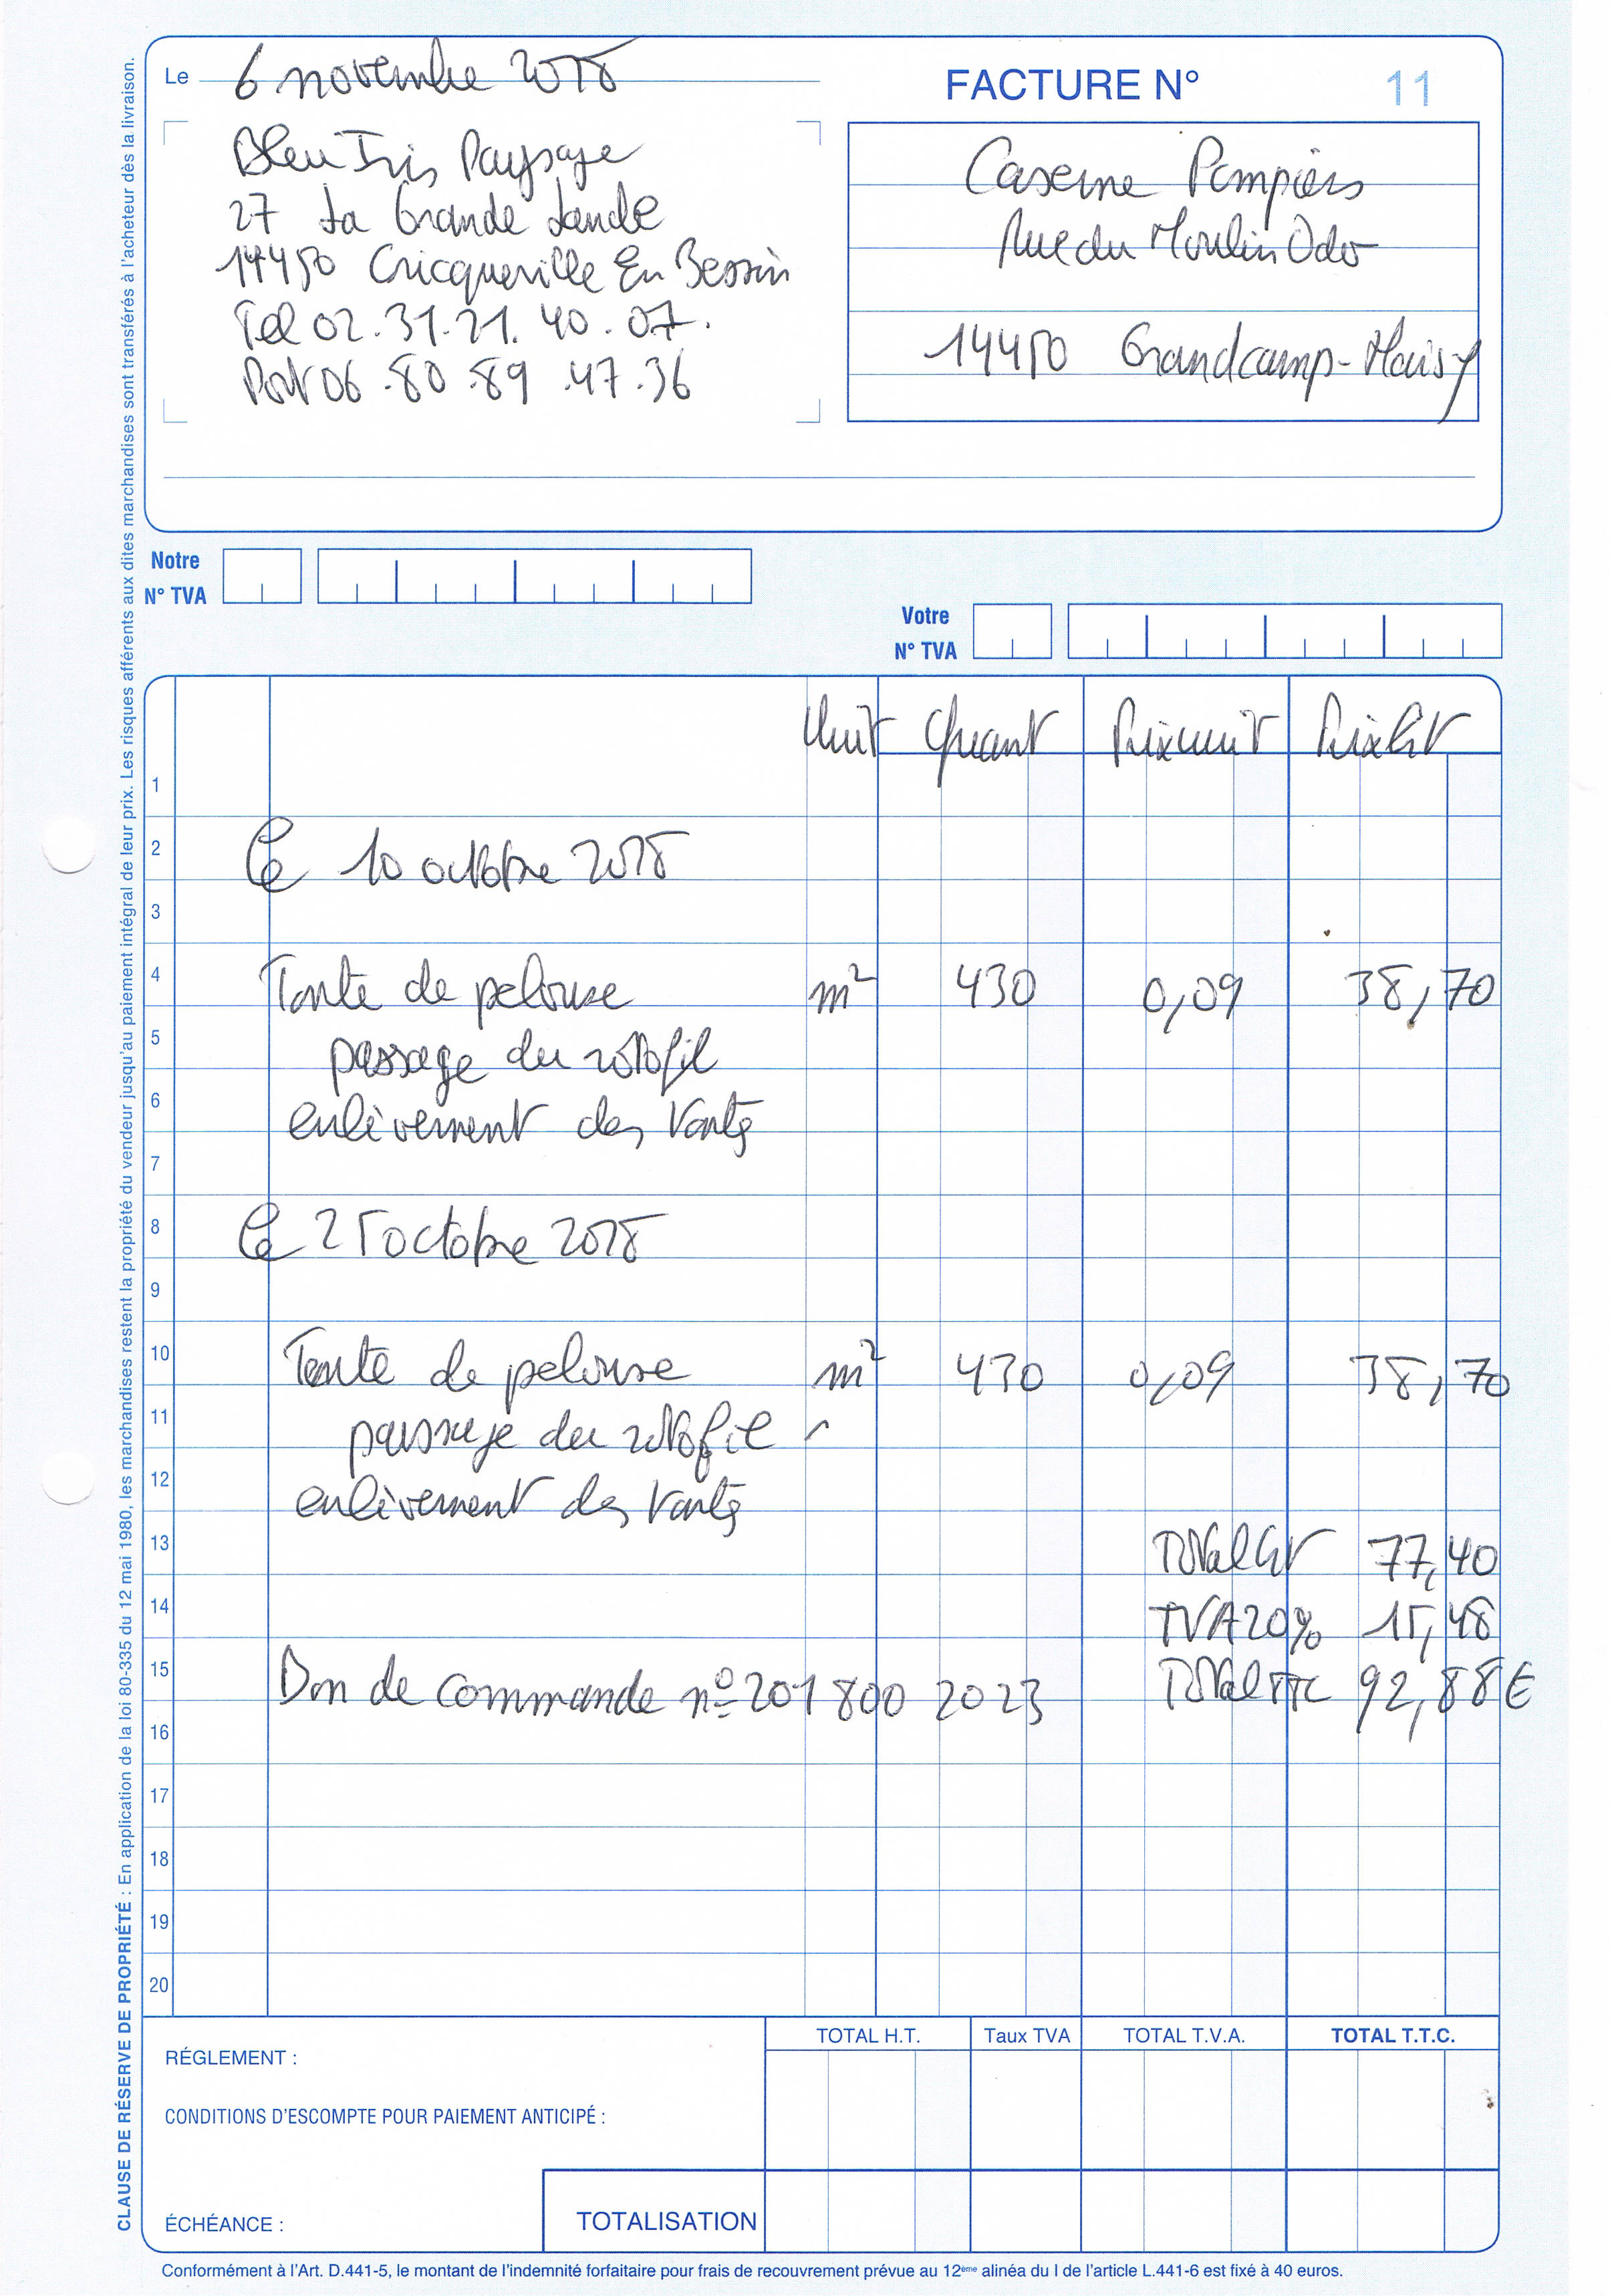 Le 6 novembre 2018
FACTURE N° 11
Bleu Iris Paysage
27 La Grande Lande
14450 Cricqueville En Bessin
Tel 02.31.21.40.07.
Port 06.80.89.47.36
Caserne Pompiers
Rue du Moulin Odo
14450 Grandcamp-Maisy
Notre
N° TVA
Votre
N° TVA
Unit Quant Prix unit Prix HT
1
2 Le 10 octobre 2018
3
4 Tonte de pelouse m² 430 0,09 38,70
5 passage du rotofil
6 enlèvement des tontes
7
8 Le 25 octobre 2018
9
10 Tonte de pelouse m² 430 0,09 38,70
11 passage du rotofil
12 enlèvement des tontes
13 Total HT 77,40
14 TVA 20% 15,48
15 Bon de commande n° 201800 2023 Total TTC 92,88 €
16
17
18
19
20
TOTAL H.T. Taux TVA TOTAL T.V.A. TOTAL T.T.C.
RÉGLEMENT :
CONDITIONS D'ESCOMPTE POUR PAIEMENT ANTICIPÉ :
ÉCHÉANCE : TOTALISATION
Conformément à l'Art. D.441-5, le montant de l'indemnité forfaitaire pour frais de recouvrement prévue au 12ème alinéa du I de l'article L.441-6 est fixé à 40 euros.
CLAUSE DE RÉSERVE DE PROPRIÉTÉ : En application de la loi 80-335 du 12 mai 1980, les marchandises restent la propriété du vendeur jusqu'au paiement intégral de leur prix. Les risques afférents aux dites marchandises sont transférés à l'acheteur dès la livraison.